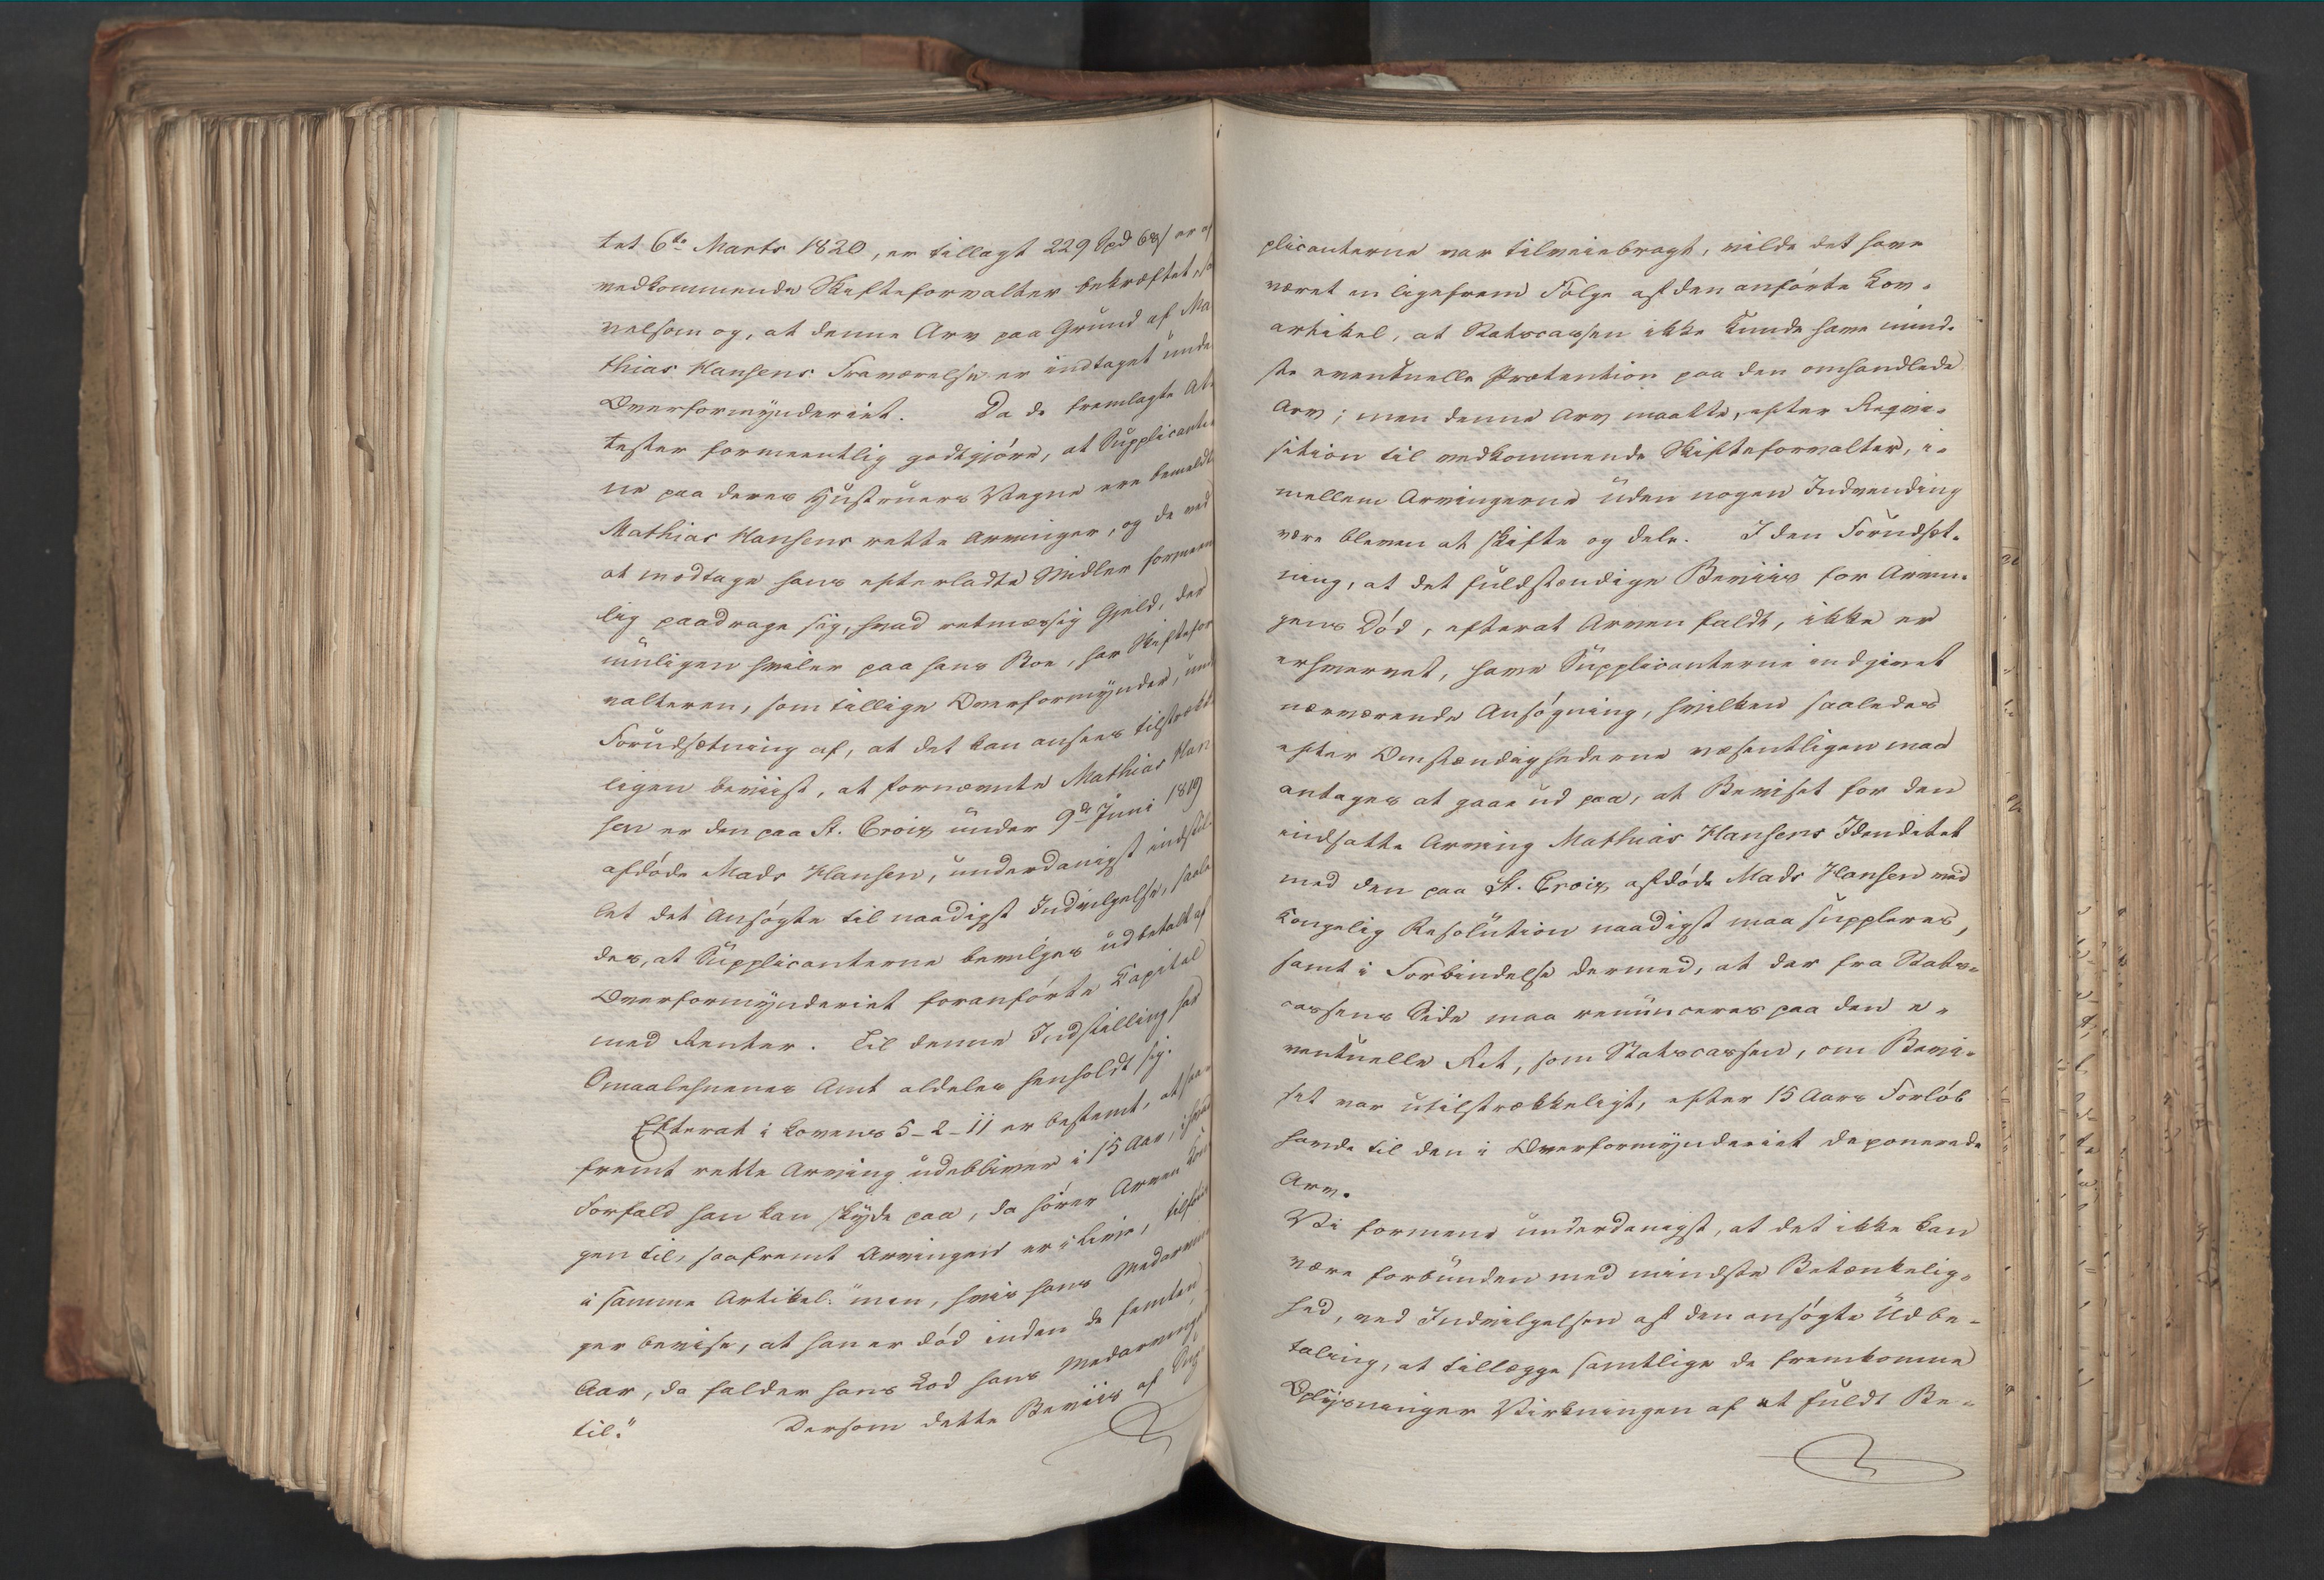 tet 6te Marts 1820, er tillagt 229 Spd 68/ er af
vedkommende Skifteforvalter bekræftet, saa
velsom og, at denne Arv paa Grund af Ma
thias Hansens Fraværelse er indtaget unde
Overformynderiet. Da de fremlagte At-
tester formeentlig godtgjøre, at Supplicanter
ne paa deres Hustruers Vegne ere bemeldte
Mathias Hansens rette Arvinger, og de ved
at modtage hans efterladte Midler formeent
lig paadrage sig, hvad retmæssig Gjeld, der
muligen hviler paa hans Boe, har Skiftefor
valteren, som tillige Overformynder, under
Forudsætning af, at det kan ansees tilstrække
ligen beviist, at fornævnte Mathias Han
sen er den paa St. Croix under 9de Juni 1819
afdøde Mads Hansen, underdanigst indstil-
let det Ansøgte til naadigst Indvilgelse, saale
des, at Supplicanterne bevilges udbetalt af
Overformynderiet foranførte Capital
med Renter. Til denne Indstilling har
Smaalehnenes Amt aldeles henholdt sig.
Efterat i Lovens 5-2-11 er bestemt, at saa-
fremt rette Arving udebliver i 15 Aar, i hvad
Forfald han kan skyde paa, da hører Arven Kon
gen til, saafremt Arvingen er i Live, tilføies
i samme Artikel: "men, hvis hans Medarvin
ger bevise, at han er død inden de femten
Aar, da falder hans Lod hans Medarvinger
til." Dersom dette Beviis af Sup-
plicanterne var tilveiebragt, vilde det have
været en ligefrem Følge af den anførte Lov-
artikel, at Statscassen ikke kunde have mind-
ste eventuelle Prætention paa den omhandlede
Arv; men denne Arv maatte, efter Reqvi-
sition til vedkommende Skifteforvalter, i-
mellem Arvingerne uden nogen Indvending
være bleven at skifte og dele. I den Forudsæt-
ning, at det fuldstændige Beviis for Arvin-
gens Død, efterat Arven faldt, ikke er
erhvervet, have Supplicanterne indgivet
nærværende Ansøgning, hvilken saaledes
efter Omstændighederne væsentligen maa
antages at gaae ud paa, at Beviset for den
indsatte Arving Mathias Hansens Idenditet
med den paa St. Croix afdøde Mads Hansen ved
Kongelig Resolution naadigst maa suppleres,
samt i Forbindelse dermed, at der fra Stats-
cassens Side maa renunceres paa den e-
ventuelle Ret, som Statscassen, om Bevi-
set var utilstrækkeligt, efter 15 Aars Forløb
havde til den i Overformynderiet deponerede
Arv.
Vi formene underdanigst, at det ikke kan
være forbunden med mindste Betænkelig-
hed, ved Indvilgelsen af den ansøgte Udbe-
taling, at tillægge samtlige de fremkomne
Oplysninger Virkningen af et fuldt Be-